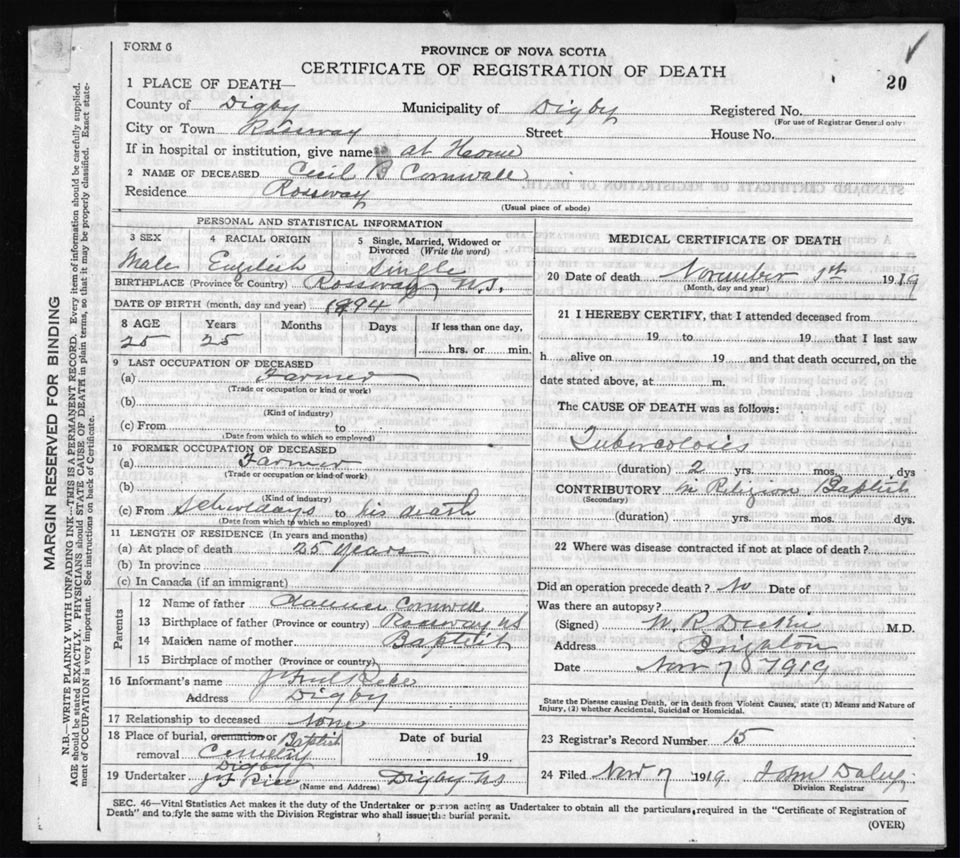 FORM 6
PROVINCE OF NOVA SCOTIA
CERTIFICATE OF REGISTRATION OF DEATH
20
1 PLACE OF DEATH—
County of Digby Municipality of Digby Registered No.
(For use of Registrar General only)
City or Town Rossway Street House No.
If in hospital or institution, give name at Home
2 NAME OF DECEASED Cecil B Cornwall
Residence Rossway
(Usual place of abode)
PERSONAL AND STATISTICAL INFORMATION
3 SEX 4 RACIAL ORIGIN 5 Single, Married, Widowed or Divorced (Write the word)
Male English Single
BIRTHPLACE (Province or Country) Rossway N.S.
DATE OF BIRTH (month, day and year) 1894
8 AGE Years Months Days If less than one day,
25 25 hrs. or min.
9 LAST OCCUPATION OF DECEASED
(a) Farmer
(Trade or occupation or kind of work)
(b)
(Kind of industry)
(c) From to
(Date from which to which so employed)
10 FORMER OCCUPATION OF DECEASED
(a) Farmer
(Trade or occupation or kind of work)
(b)
(Kind of industry)
(c) From to his death
(Date from which to which so employed)
11 LENGTH OF RESIDENCE (In years and months)
(a) At place of death 25 years
(b) In province
(c) In Canada (if an immigrant)
Parents
12 Name of father Cornwell
13 Birthplace of father (Province or country) Rossway NS
14 Maiden name of mother Baptist
15 Birthplace of mother (Province or country)
16 Informant's name
Address Digby
17 Relationship to deceased None
18 Place of burial, cremation or removal Baptist Cemetry Digby
Date of burial 19
19 Undertaker Digby NS
(Name and Address)
MEDICAL CERTIFICATE OF DEATH
20 Date of death November 1st 1919
(Month, day and year)
21 I HEREBY CERTIFY, that I attended deceased from
19 to 19 that I last saw
h alive on 19 and that death occurred, on the
date stated above, at m.
The CAUSE OF DEATH was as follows:
Tubercolosis
(duration) 2 yrs. mos. dys
CONTRIBUTORY in Religion Baptist
(Secondary)
(duration) yrs. mos. dys.
22 Where was disease contracted if not at place of death?
Did an operation precede death? No Date of
Was there an autopsy?
(Signed) W R M.D.
Address Brighton
Date Nov 7 1919
State the Disease causing Death, or in death from Violent Causes, state (1) Means and Nature of
Injury, (2) whether Accidental, Suicidal or Homicidal.
23 Registrar's Record Number 15
24 Filed Nov 7 1919 John Daley
Division Registrar
SEC. 46—Vital Statistics Act makes it the duty of the Undertaker or person acting as Undertaker to obtain all the particulars, required in the "Certificate of Registration of
Death" and to fyle the same with the Division Registrar who shall issue the burial permit.
(OVER)
MARGIN RESERVED FOR BINDING
N.B.—WRITE PLAINLY WITH UNFADING INK—THIS IS A PERMANENT RECORD. Every item of information should be carefully supplied.
AGE should be stated EXACTLY. PHYSICIANS should STATE CAUSE OF DEATH in plain terms, so that it may be properly classified. Exact state-
ment of OCCUPATION is very important. See instructions on back of Certificate.